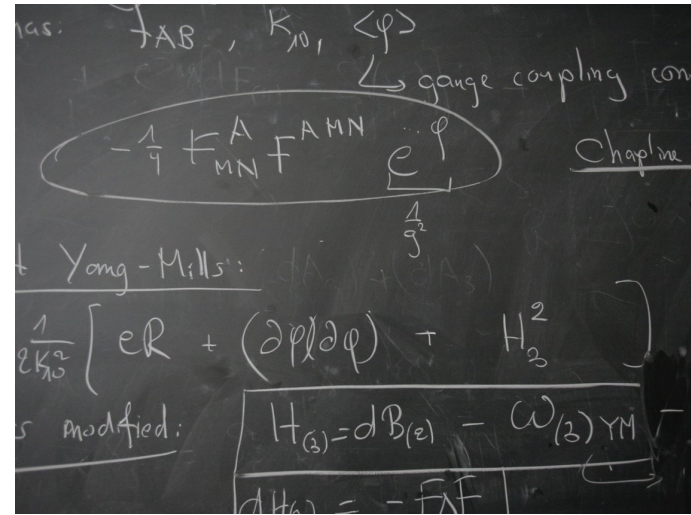 has: f_{AB}, K_{10}, <φ>
↳ gauge coupling con
-1/4 F^A_{MN} F^{AMN} e^{..φ}
Chapline
1/g²
t Yang-Mills:
1/2K²_{10} [ eR + (∂φ)(∂φ) + H²_3 ]
s modified:
H_{(3)} = dB_{(2)} - ω_{(3)YM} -
dH_{(3)} = - F∧F